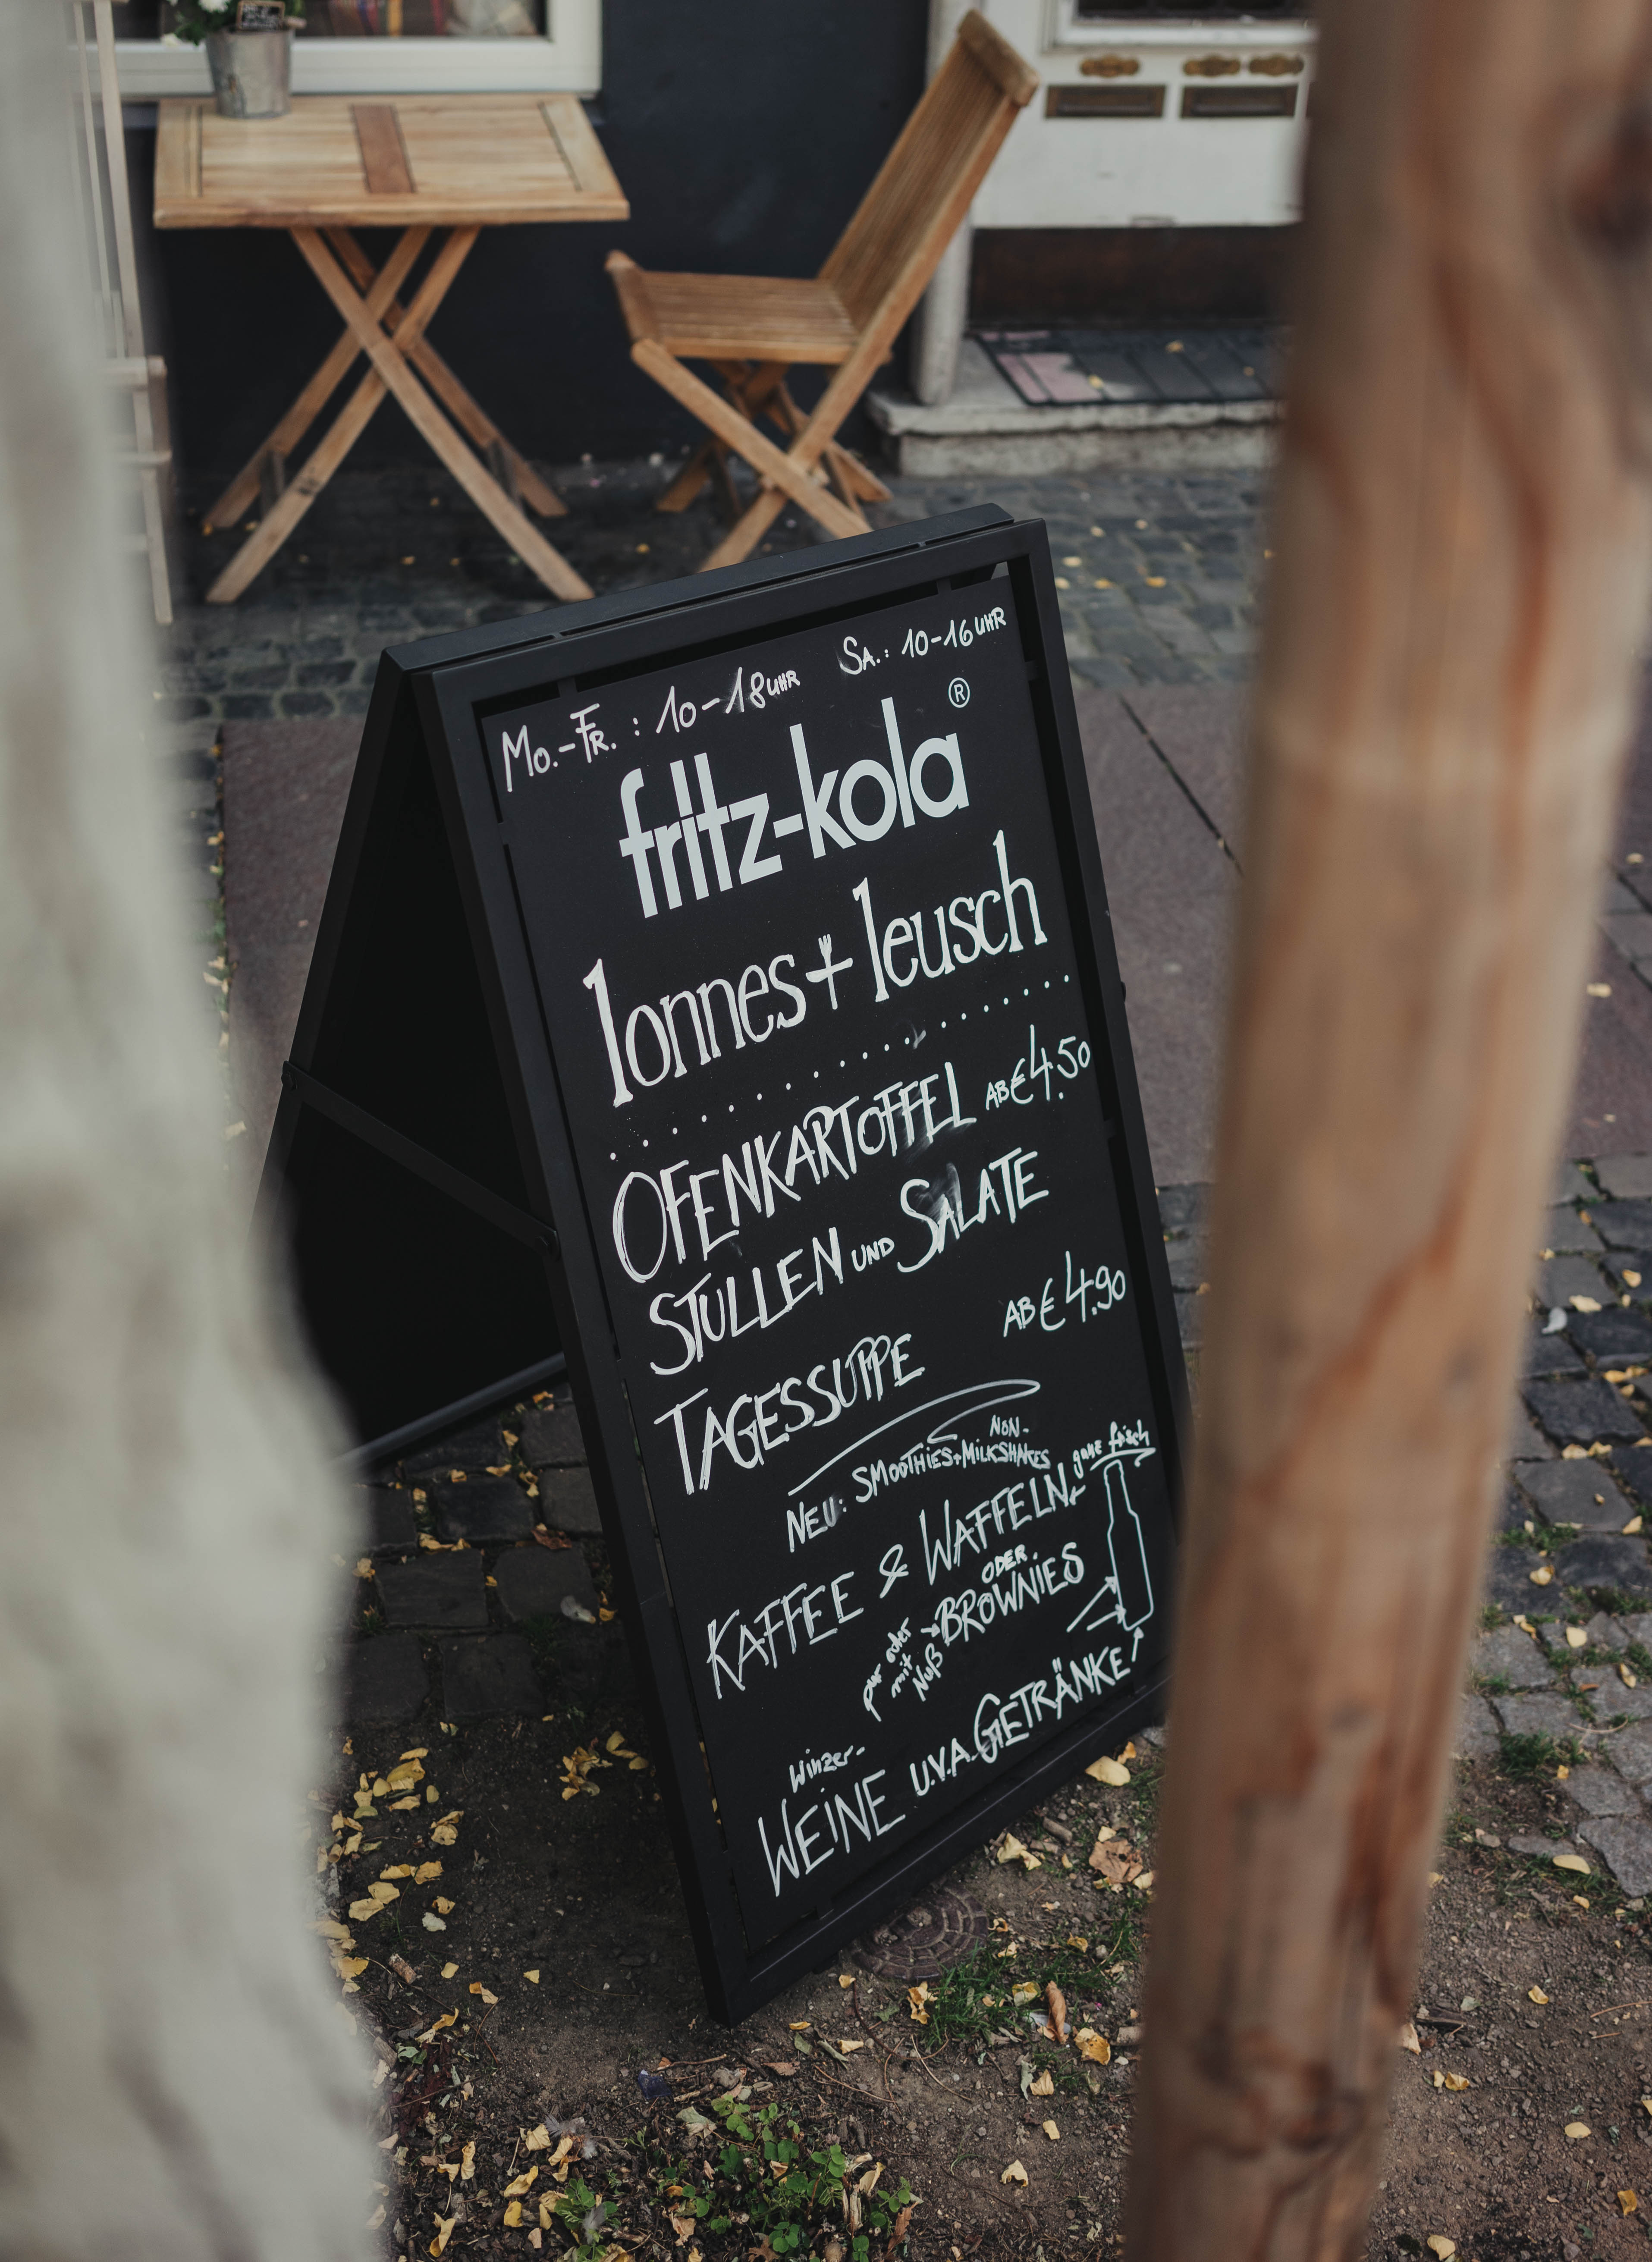 Mo.-Fr. : 10-18 UHR  Sa.: 10-16 UHR
fritz-kola®
lonnes + leusch
OFENKARTOFFEL AB € 4.50
STULLEN UND SALATE
AB € 4.90
TAGESSUPPE
NON-
NEU: SMOOTHIES + MILKSHAKES
KAFFEE & WAFFELN, ganz frisch
ODER
pur oder mit Nuß BROWNIES
Winzer-
WEINE U.V.A. GETRÄNKE!